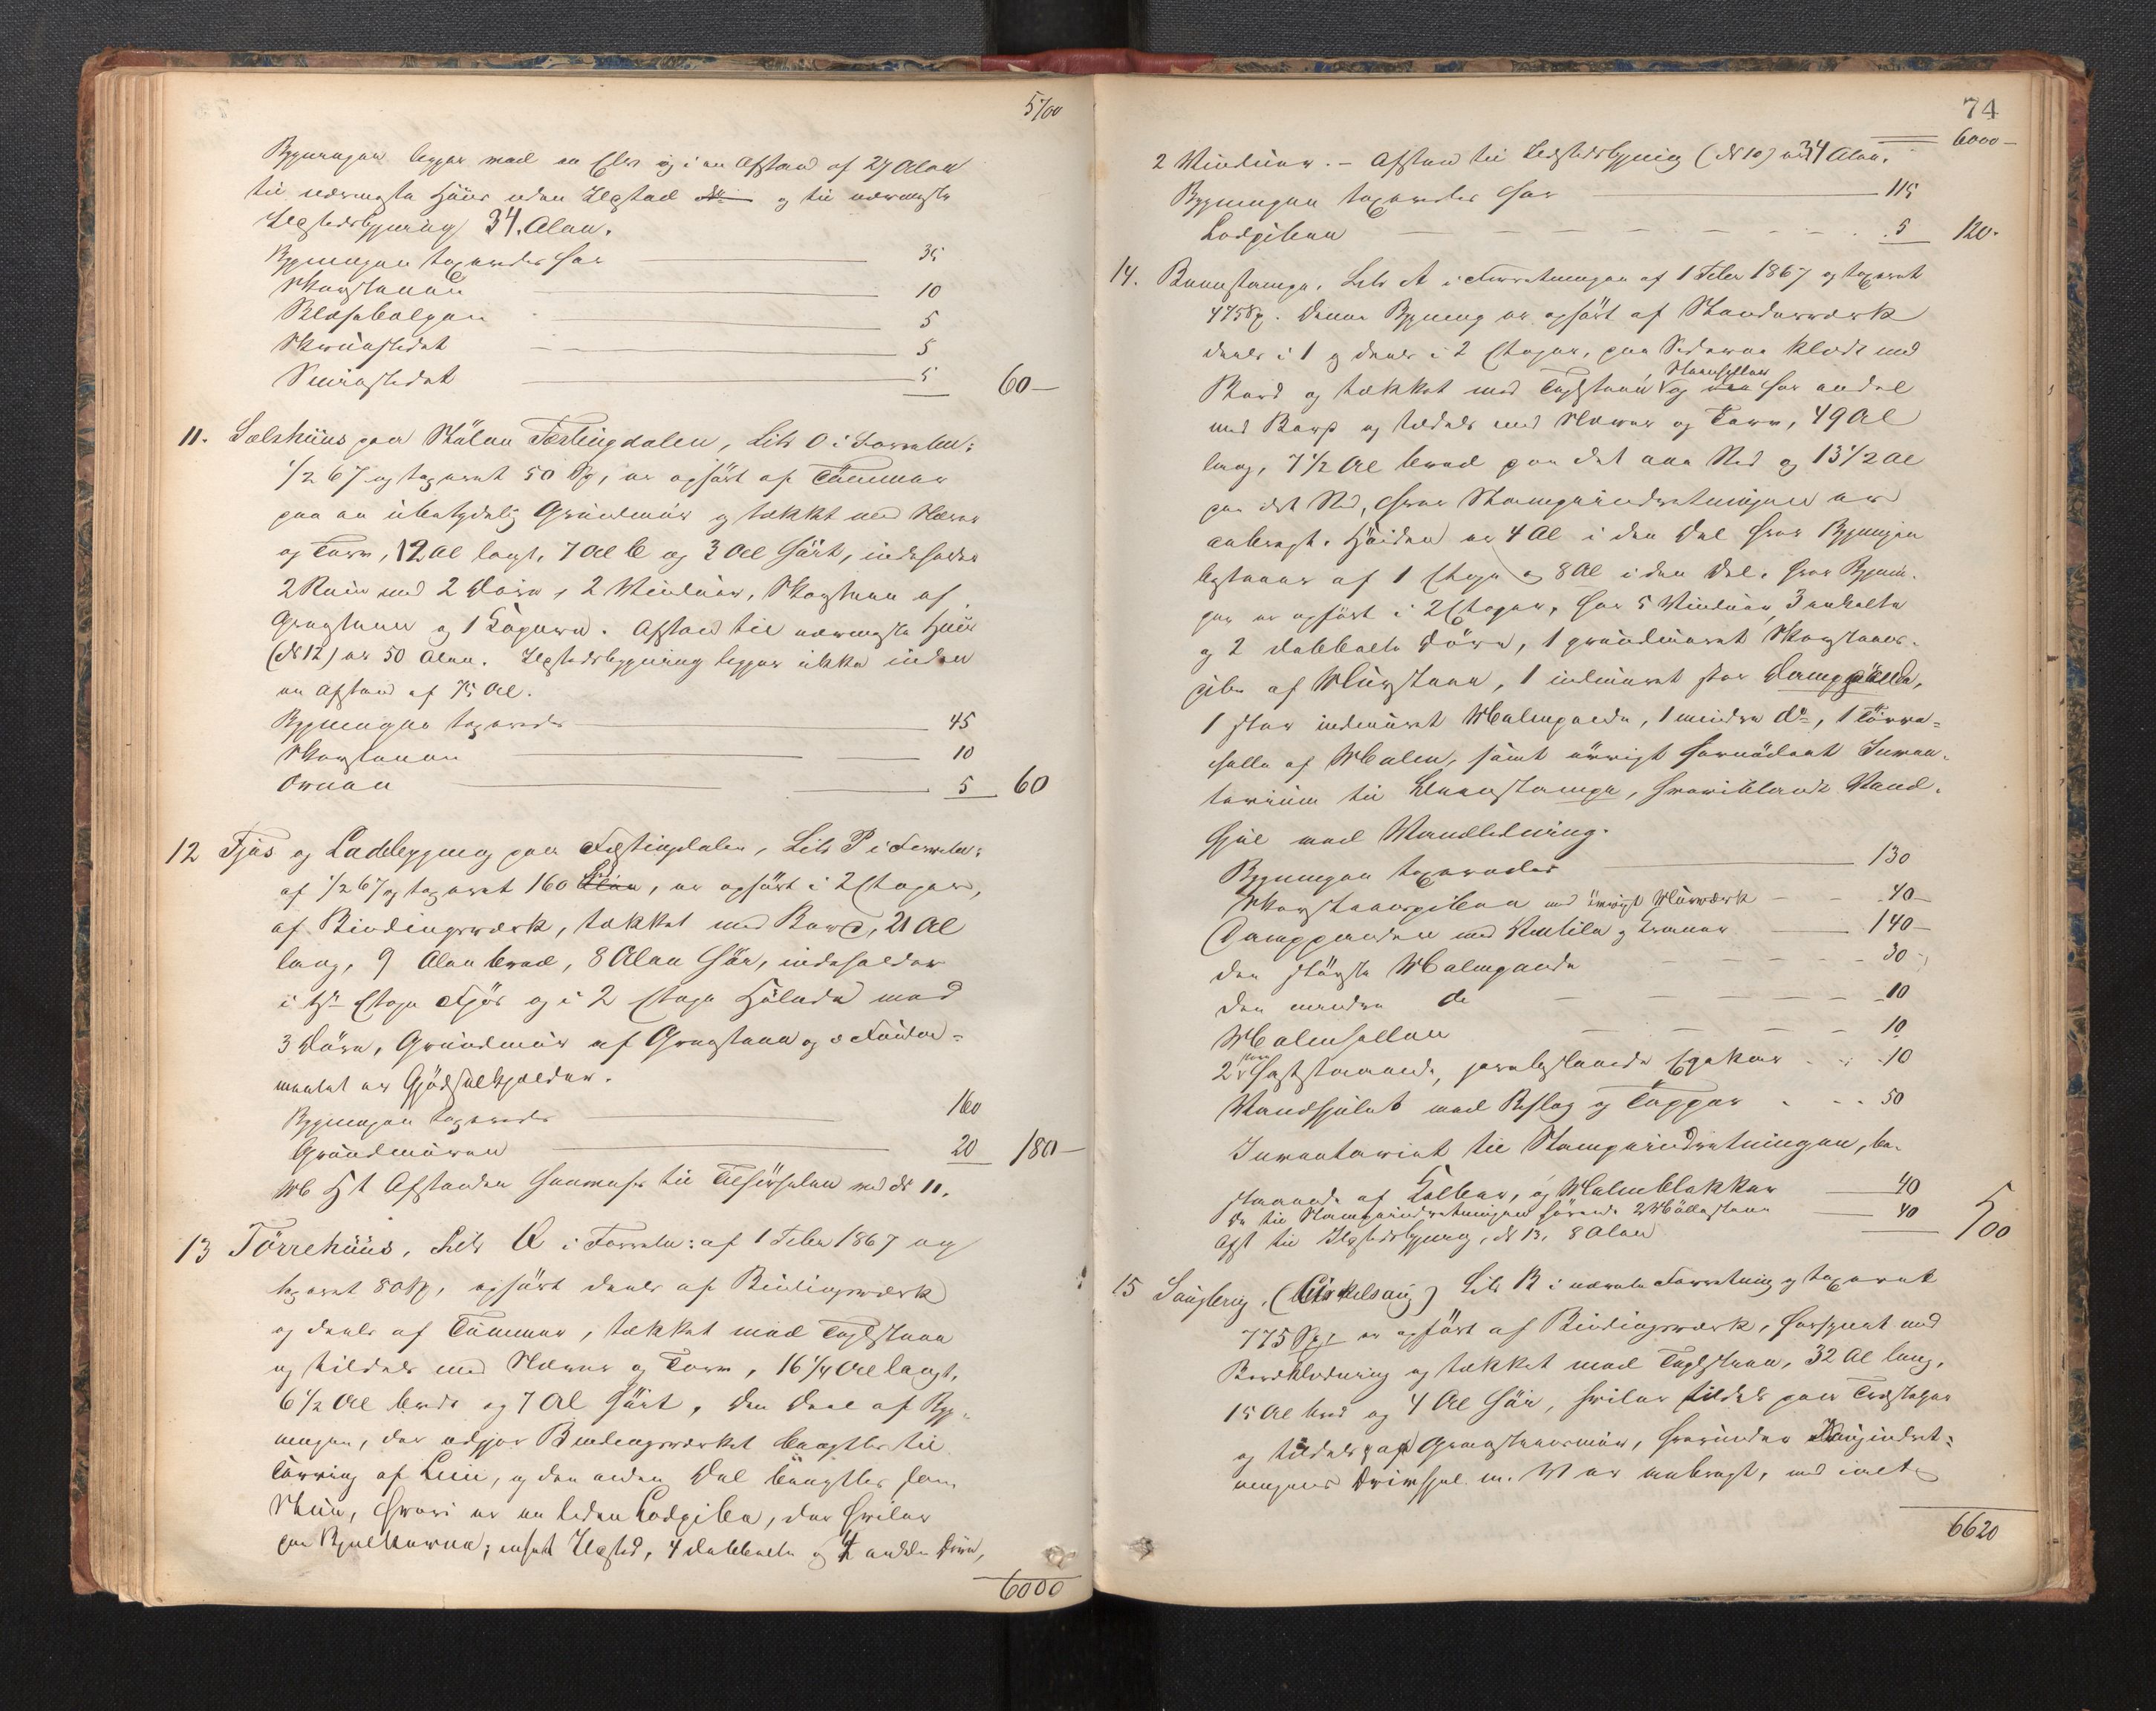 5700
Bygningen ligger ved en Elv og i en Afstand af 27 Alen
til nærmeste Huus uden Ildsted og til nærmeste
Ildstedsbygning 34. Alen.
Bygningen taxeredes for 35
Skorstenen 10
Blæsebælgen 5
Skruustedet 5
Smiustedet 5 60 —
11. Sælehuus paa Stølen Fæstingdalen, Litr O i Forretn:
1/2 67 og taxeret 50 Sp, er opført af Tømmer
paa en ubetydelig Grundmuur og tækket med Næver
og Torv, 12 Al langt, 7 Al b og 3 Al høit, indeholder
2 Rum med 2 Døre, 2 Vinduer, Skorsteen af
Graasteen og 1 Kogeovn. Afstand til nærmeste Huus
(No 12) er 50 Alen. Ildstedsbygning ligger ikke inden
en Afstand af 75 Al.
Bygningen taxeredes 45
Skorstenen 10
Ovnen 5 60
12 Fjøs og Ladebygning paa Fæstingdalen, Litr P i Forretn:
af 1/2 67 og taxeret 160 , er opført i 2 Etager,
af Bindingsværk, tækket med Bord, 21 Al
lang, 9 Alen bred, 8 Alen høi, indeholder
i 1ste Etage Fjøs og i 2 Etage Høelade med
3 Døre, Grundmuur af Graasteen og i Funda=
mentet er Gjødselkjelder.
Bygningen taxeredes 160
Grundmuren 20 180 —
NB Ht Afstanden henvises til Tilførselen ved No 11.
13 Tørrehuus, Litr Q i Forretn: af 1 Febr 1867 og
taxeret 80 Sp, opført deels af Bindingsværk
og deels af Tømmer, tækket med Taglsteen
og tildels med Næver og Torv, 16 1/4 Al langt,
6 1/2 Al bredt og 7 Al høit, den Deel af Byg=
ningen, der udgjør Bindingsværket benyttes til
Tørring af Liin, og den anden Del benyttes som
Skuur, hvori er en liden Lodpibe, der hviler
paa Bjelkerne; intet Ildsted, 4 dobbelte og 4 enkle Døre,
6000
74
6000 —
2 Vinduer. — Afstand til Ildstedsbygning (No 10) er 34 Alen.
Bygningen taxeredes for 115
Lodpiben 5 120.
14. Beenstampe, Litr A i Forretningen af 1 Febr 1867 og taxeret
475 Sp. Denne Bygning er opført af Standerværk
deels i 1 og deels i 2 Etager, paa Siderne klædt med
Bord og tækket med Taglsteen og for endel
med Bord og tildels med Næver og Torv, 49 Al
lang, 7 1/2 Al bred paa det ene Sted og 13 1/2 Al
paa det Sted, hvor Stampeindretningen er
anbragt. Høiden er 4 Al i den Del hvor Bygningen
bestaaer af 1 Etage og 8 Al i den Del, hvor Bygnin=
gen er opført i 2 Etager, har 5 Vinduer, 3 enkelte
og 2 dobbelte Døre, 1 grundmuret Skorsteens=
pibe af Muursteen, 1 indmuret stor Damppande,
1 stor indmuret Malmpande, 1 mindre do, 1 Tørre=
helle af Malm, samt øvrigt fornødent Inven=
tarium til Beenstampe, hvoriblandt Vand=
hjul med Vandledning.
Bygningen taxeredes 130
Skorsteenspiben med øvrigt Muurværk 40 —
Damppanden med Ventiler og Kraner 140 —
den største Malmpande 30
den mindre do 10
Malmhellen 10
2 store faststaaende, jernbeslaaede Egekar 10
Vandhjulet med Beslag og Tapper 50
Inventariet til Stampeindretningen, be=
staaende af Kolber, og Malmblokker 40
De til Stampeindretningen hørende 2 Møllesteene 40
Afst til Ildstedsbygning, No 13, 8 Alen 500
15 Saugbrug, (Cirkelsaug) Litr B i nævnte Forretning og taxeret
775 Sp er opført af Bindingsværk, forsynet med
Bordklædning og tækket med Taglsteen, 32 Al lang,
15 Al bred og 4 Al høi, hviler tildels paa Træstolper
og tildels paa Graasteensmuur, hvorunder Saugindret=
ningens Drivhjul m. V er anbragt, med intet
6620